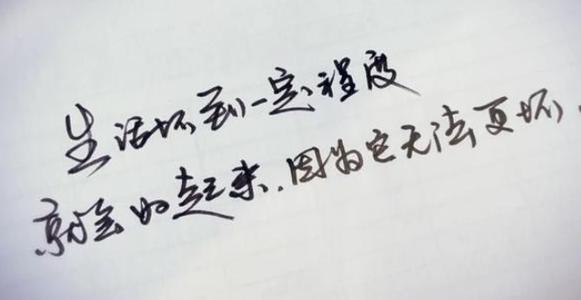 生活坏到一定程度
就会好起来,因为它无法更坏。